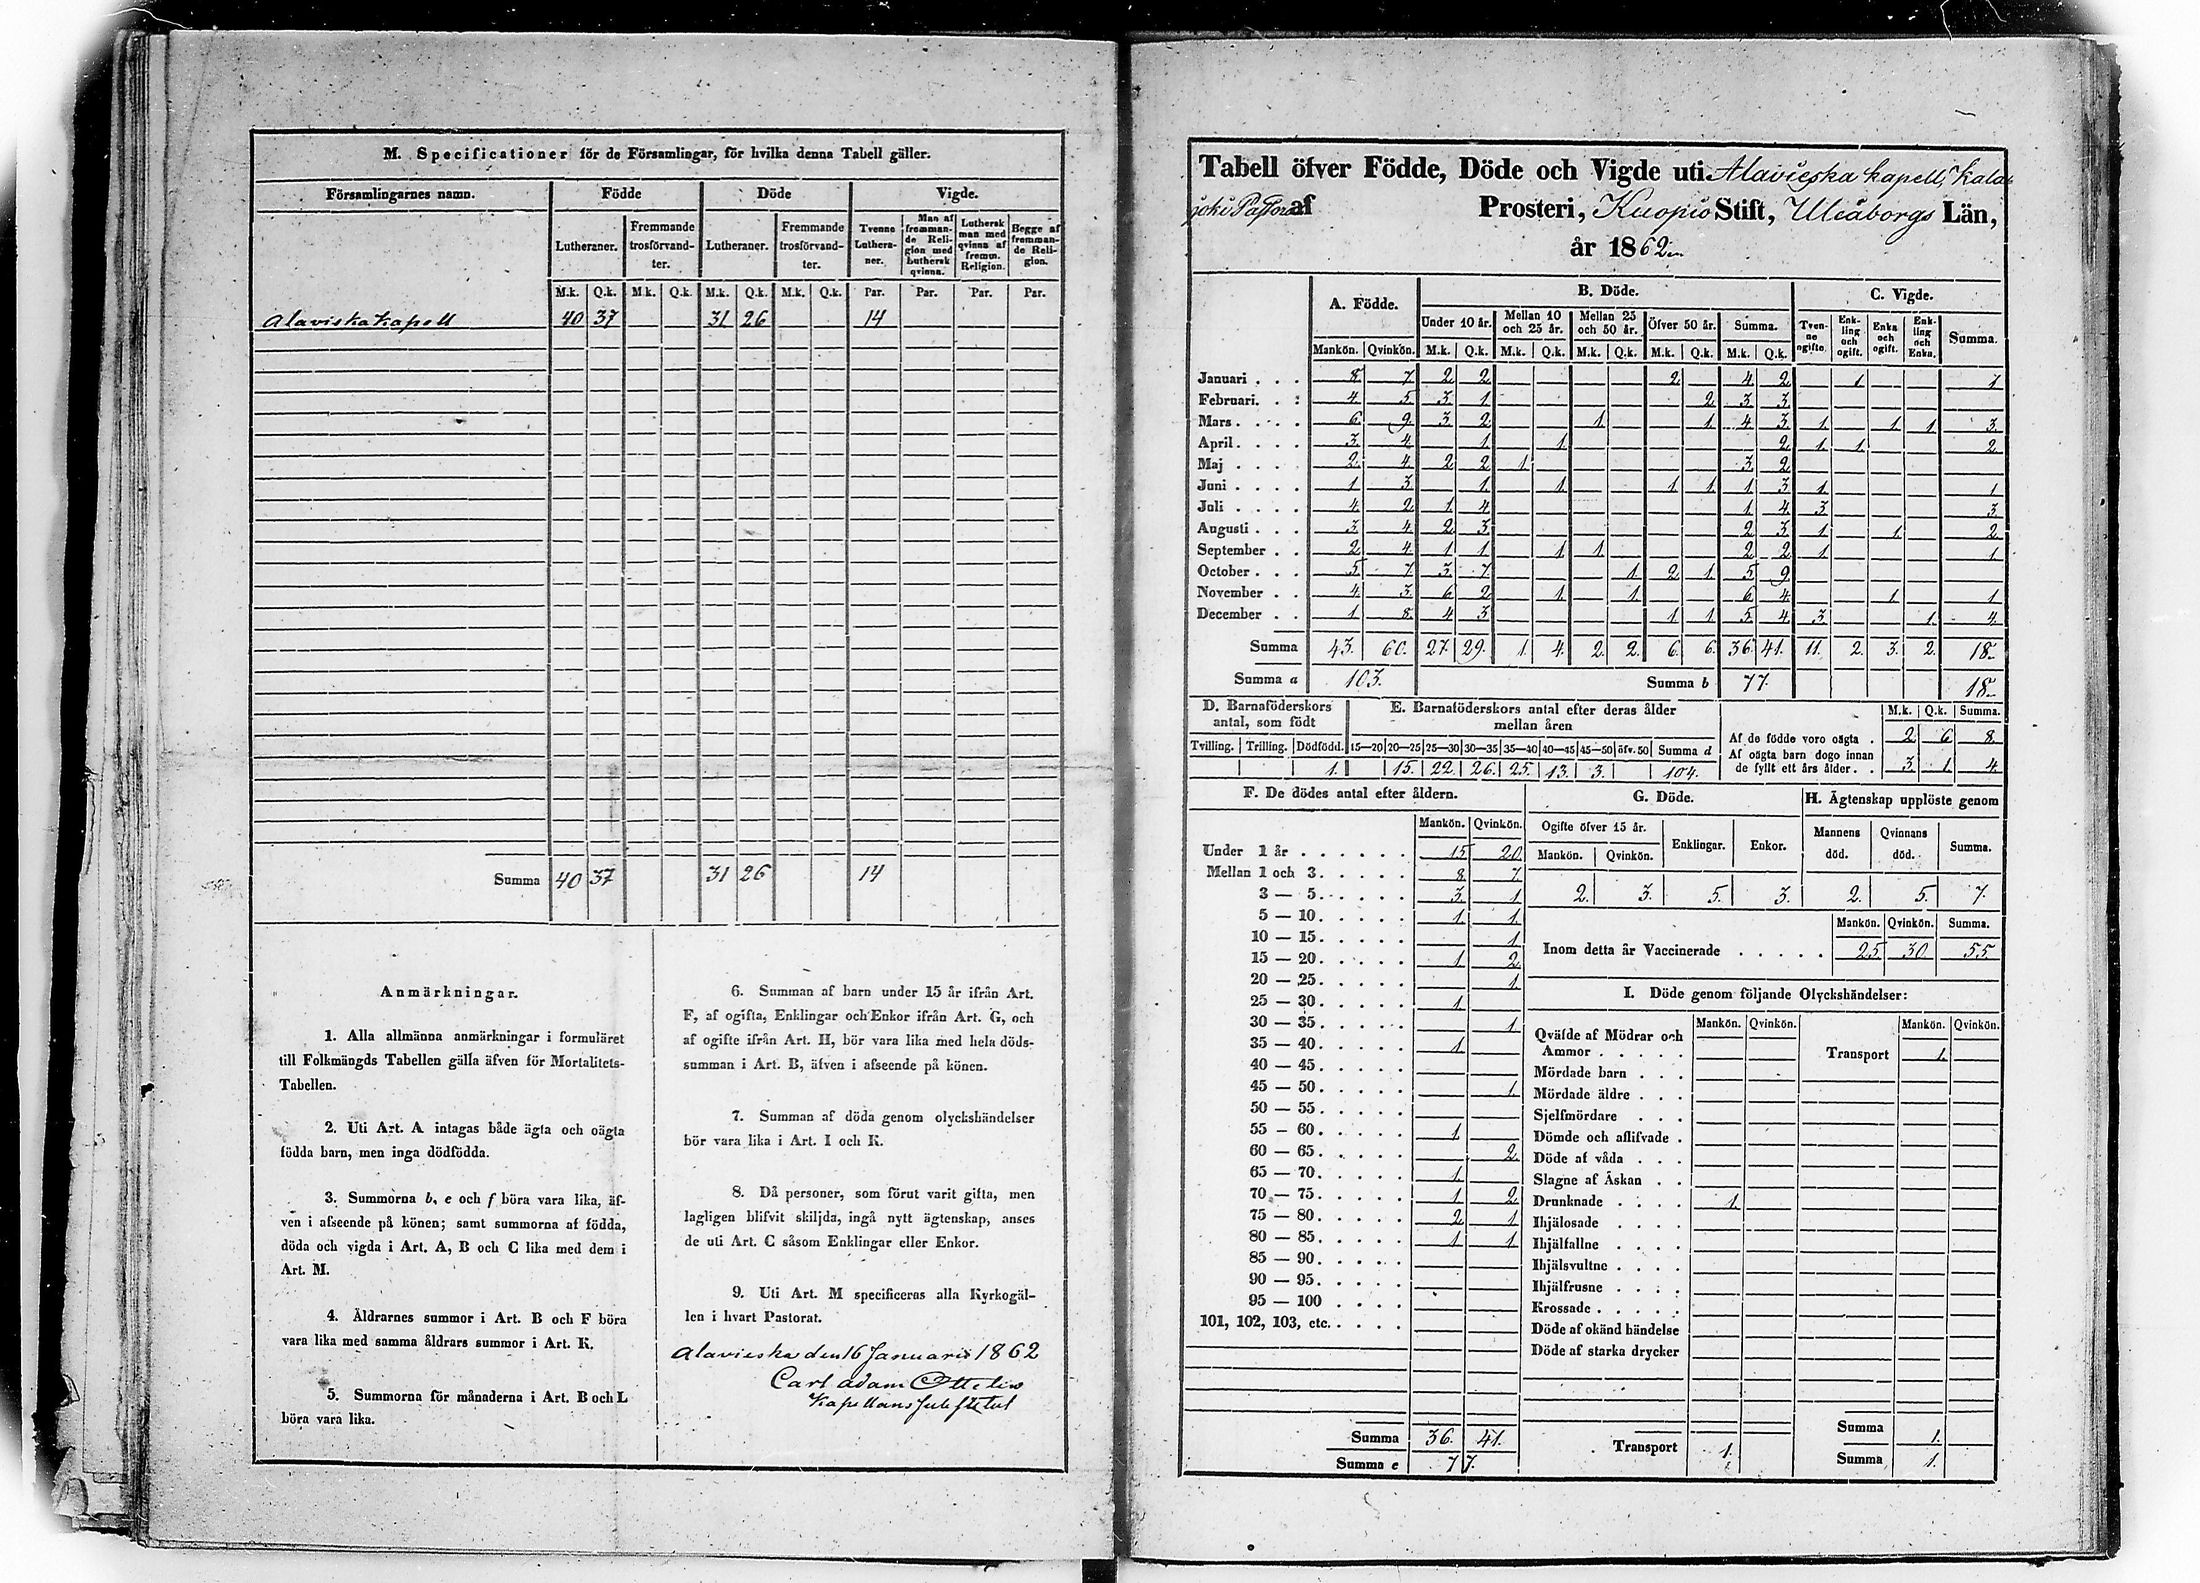 M. Specificationer för de Församlingar, för hvilka denna Tabell gäller.
Församlingarnes namn. Födde Döde Vigde.
Lutheraner. Fremmande trosförvandter. Lutheraner. Fremmande trosförvandter. Tvenne Lutheraner. Man af fremmande Religion med Luthersk qvinna. Luthersk man med qvinna af fremm. Religion. Begge af fremmande Religion.
M.k. Q.k. M.k. Q.k. M.k. Q.k. M.k. Q.k. Par. Par. Par. Par.
Alaviska Kapell 40 37 31 26 14
Summa 40 37 31 26 14
Anmärkningar.
1. Alla allmänna anmärkningar i formuläret
till Folkmängds Tabellen gälla äfven för Mortalitets-
Tabellen.
2. Uti Art. A intagas både ägta och oägta
födda barn, men inga dödfödda.
3. Summorna b, e och f böra vara lika, äf-
ven i afseende på könen; samt summorna af födda,
döda och vigda i Art. A, B och C lika med dem i
Art. M.
4. Åldrarnes summor i Art. B och F böra
vara lika med samma åldrars summor i Art. K.
5. Summorna för månaderna i Art. B och L
böra vara lika.
6. Summan af barn under 15 år ifrån Art.
F, af ogifta, Enklingar och Enkor ifrån Art. G, och
af ogifte ifrån Art. H, bör vara lika med hela döds-
summan i Art. B, äfven i afseende på könen.
7. Summan af döda genom olyckshändelser
bör vara lika i Art. I och K.
8. Då personer, som förut varit gifta, men
lagligen blifvit skiljda, ingå nytt ägtenskap, anses
de uti Art. C såsom Enklingar eller Enkor.
9. Uti Art. M specificeras alla Kyrkogäl-
len i hvart Pastorat.
Alavieska den 16 Januarii 1862
Carl Adam Ottelin
Kapellans Substitut
Tabell öfver Födde, Döde och Vigde uti Alavieska kapell, Kala
joki Pastorat af Prosteri, Kuopio Stift, Uleåborgs Län,
år 1862
A. Födde. B. Döde. C. Vigde.
Under 10 år. Mellan 10 och 25 år. Mellan 25 och 50 år. Öfver 50 år. Summa. Tvenne ogifte. Enkling och ogift. Enka och ogift. Enkling och Enka. Summa.
Mankön. Qvinkön. M.k. Q.k. M.k. Q.k. M.k. Q.k. M.k. Q.k. M.k. Q.k.
Januari 8 7 2 2 2 4 2 1 1
Februari. 4 5 3 1 2 3 3
Mars 6 9 3 2 1 1 4 3 1 1 1 3
April 3 4 1 1 2 1 1 2
Maj 2 4 2 2 1 3 2
Juni 1 3 1 1 1 1 1 3 1 1
Juli 4 2 1 4 1 4 3 3
Augusti 3 4 2 3 2 3 1 1 2
September 2 4 1 1 1 1 2 2 1 1
October 5 7 3 7 1 2 1 5 9
November 4 3 6 2 1 1 6 4 1 1
December 1 8 4 3 1 1 5 4 3 1 4
Summa 43. 60. 27. 29. 1 4. 2. 2. 6. 6. 36. 41. 11. 2. 3. 2. 18
Summa a 103. Summa b 77. 18
D. Barnaföderskors antal, som födt
E. Barnaföderskors antal efter deras ålder mellan åren
M.k. Q.k. Summa.
Tvilling. Trilling. Dödfödd. 15—20 20—25 25—30 30—35 35—40 40—45 45—50 öfv. 50 Summa d
1. 15. 22. 26. 25. 13. 3. 104.
Af de födde voro oägta 2 6 8
Af oägta barn dogo innan
de fyllt ett års ålder 3 1 4
F. De dödes antal efter åldern.
Mankön. Qvinkön.
Under 1 år 15 20
Mellan 1 och 3 8 7
3 — 5 3 1
5 — 10 1 1
10 — 15 1
15 — 20 1 2
20 — 25 1
25 — 30 1
30 — 35 1
35 — 40 1
40 — 45
45 — 50 1
50 — 55
55 — 60 1
60 — 65 2
65 — 70 1
70 — 75 1 2
75 — 80 2 1
80 — 85 1 1
85 — 90
90 — 95
95 — 100
101, 102, 103, etc.
Summa 36. 41.
Summa e 77.
G. Döde.
Ogifte öfver 15 år. Enklingar. Enkor.
Mankön. Qvinkön.
2. 3. 5. 3.
H. Ägtenskap upplöste genom
Mannens död. Qvinnans död. Summa.
2. 5. 7.
Mankön. Qvinkön. Summa.
Inom detta år Vaccinerade 25 30 55
I. Döde genom följande Olyckshändelser:
Mankön. Qvinkön. Mankön. Qvinkön.
Qväfde af Mödrar och
Ammor
Transport 1.
Mördade barn
Mördade äldre
Sjelfmördare
Dömde och aflifvade
Döde af våda
Slagne af Åskan
Drunknade 1.
Ihjälosade
Ihjälfallne
Ihjälsvultne
Ihjälfrusne
Krossade
Döde af okänd händelse
Döde af starka drycker
Transport 1.
Summa 1.
Summa 1.